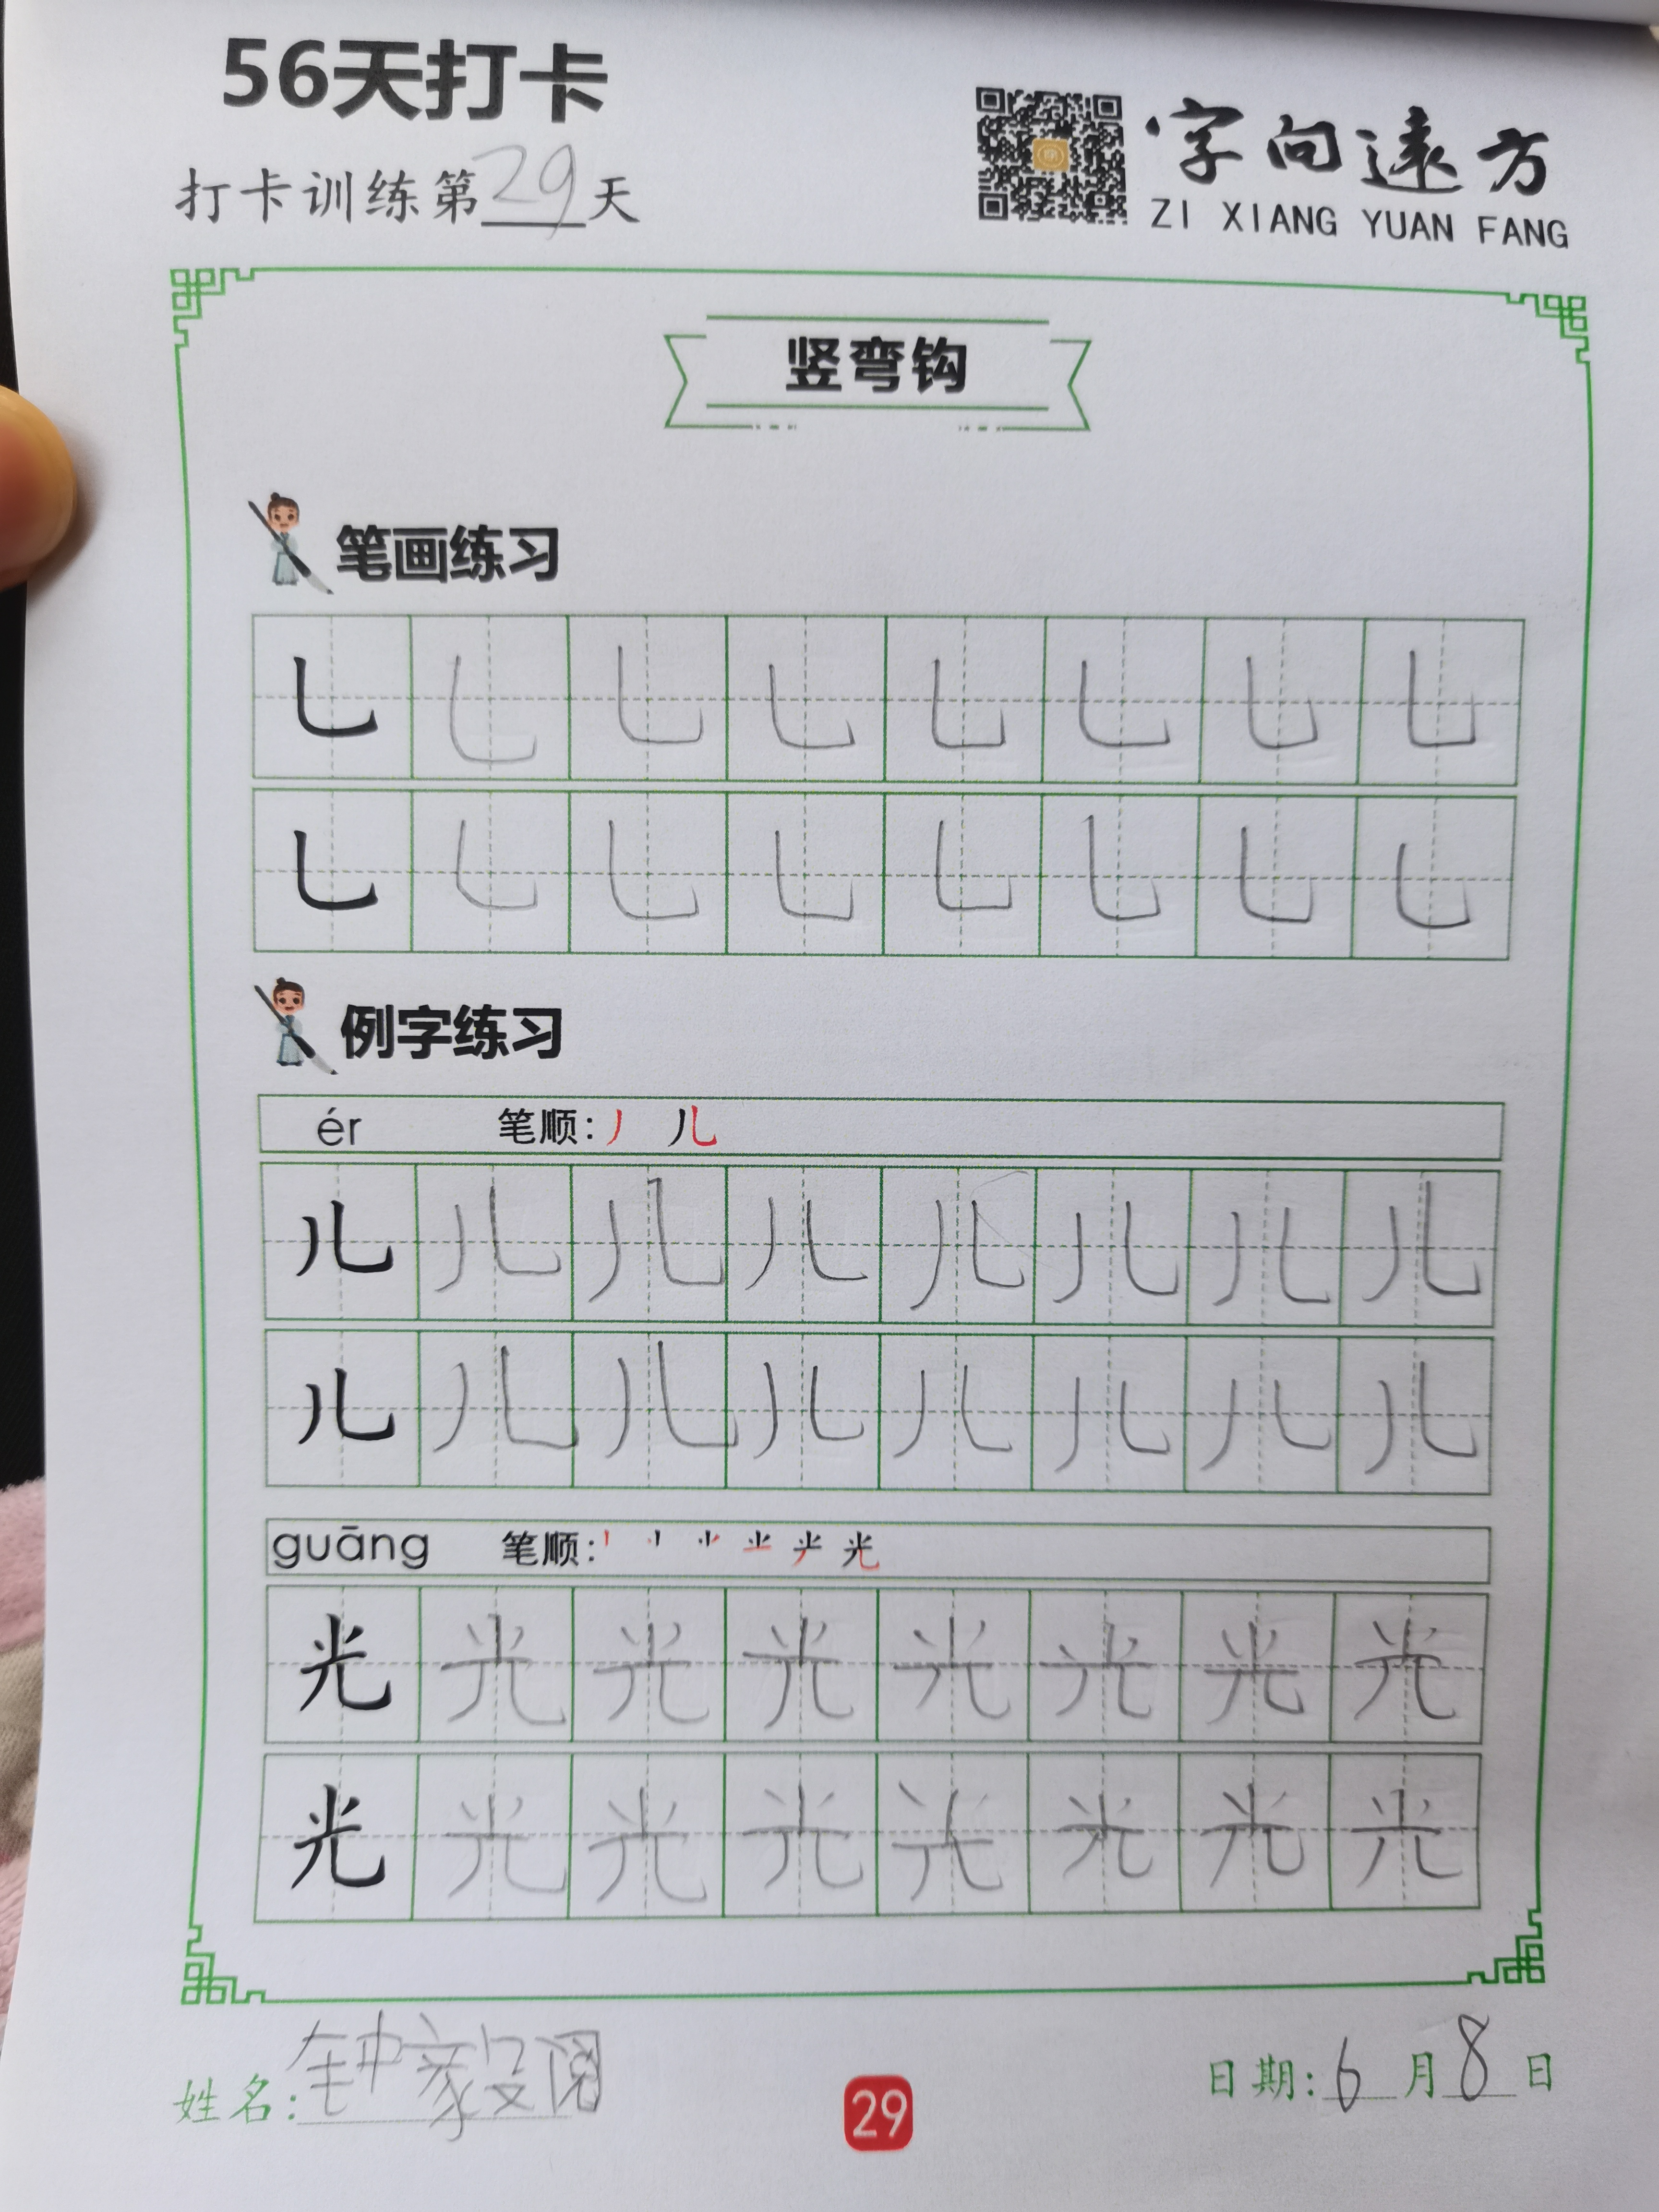 56天打卡
打卡训练第29天
字向遠方
ZI XIANG YUAN FANG
竖弯钩
笔画练习
乚 乚 乚 乚 乚 乚 乚 乚
乚 乚 乚 乚 乚 乚 乚 乚
例字练习
ér 笔顺:丿 儿
儿 儿 儿 儿 儿 儿 儿 儿
儿 儿 儿 儿 儿 儿 儿 儿
guāng 笔顺: 光
光 光 光 光 光 光 光 光
光 光 光 光 光 光 光 光
姓名:钟家
29
日期:6月8日